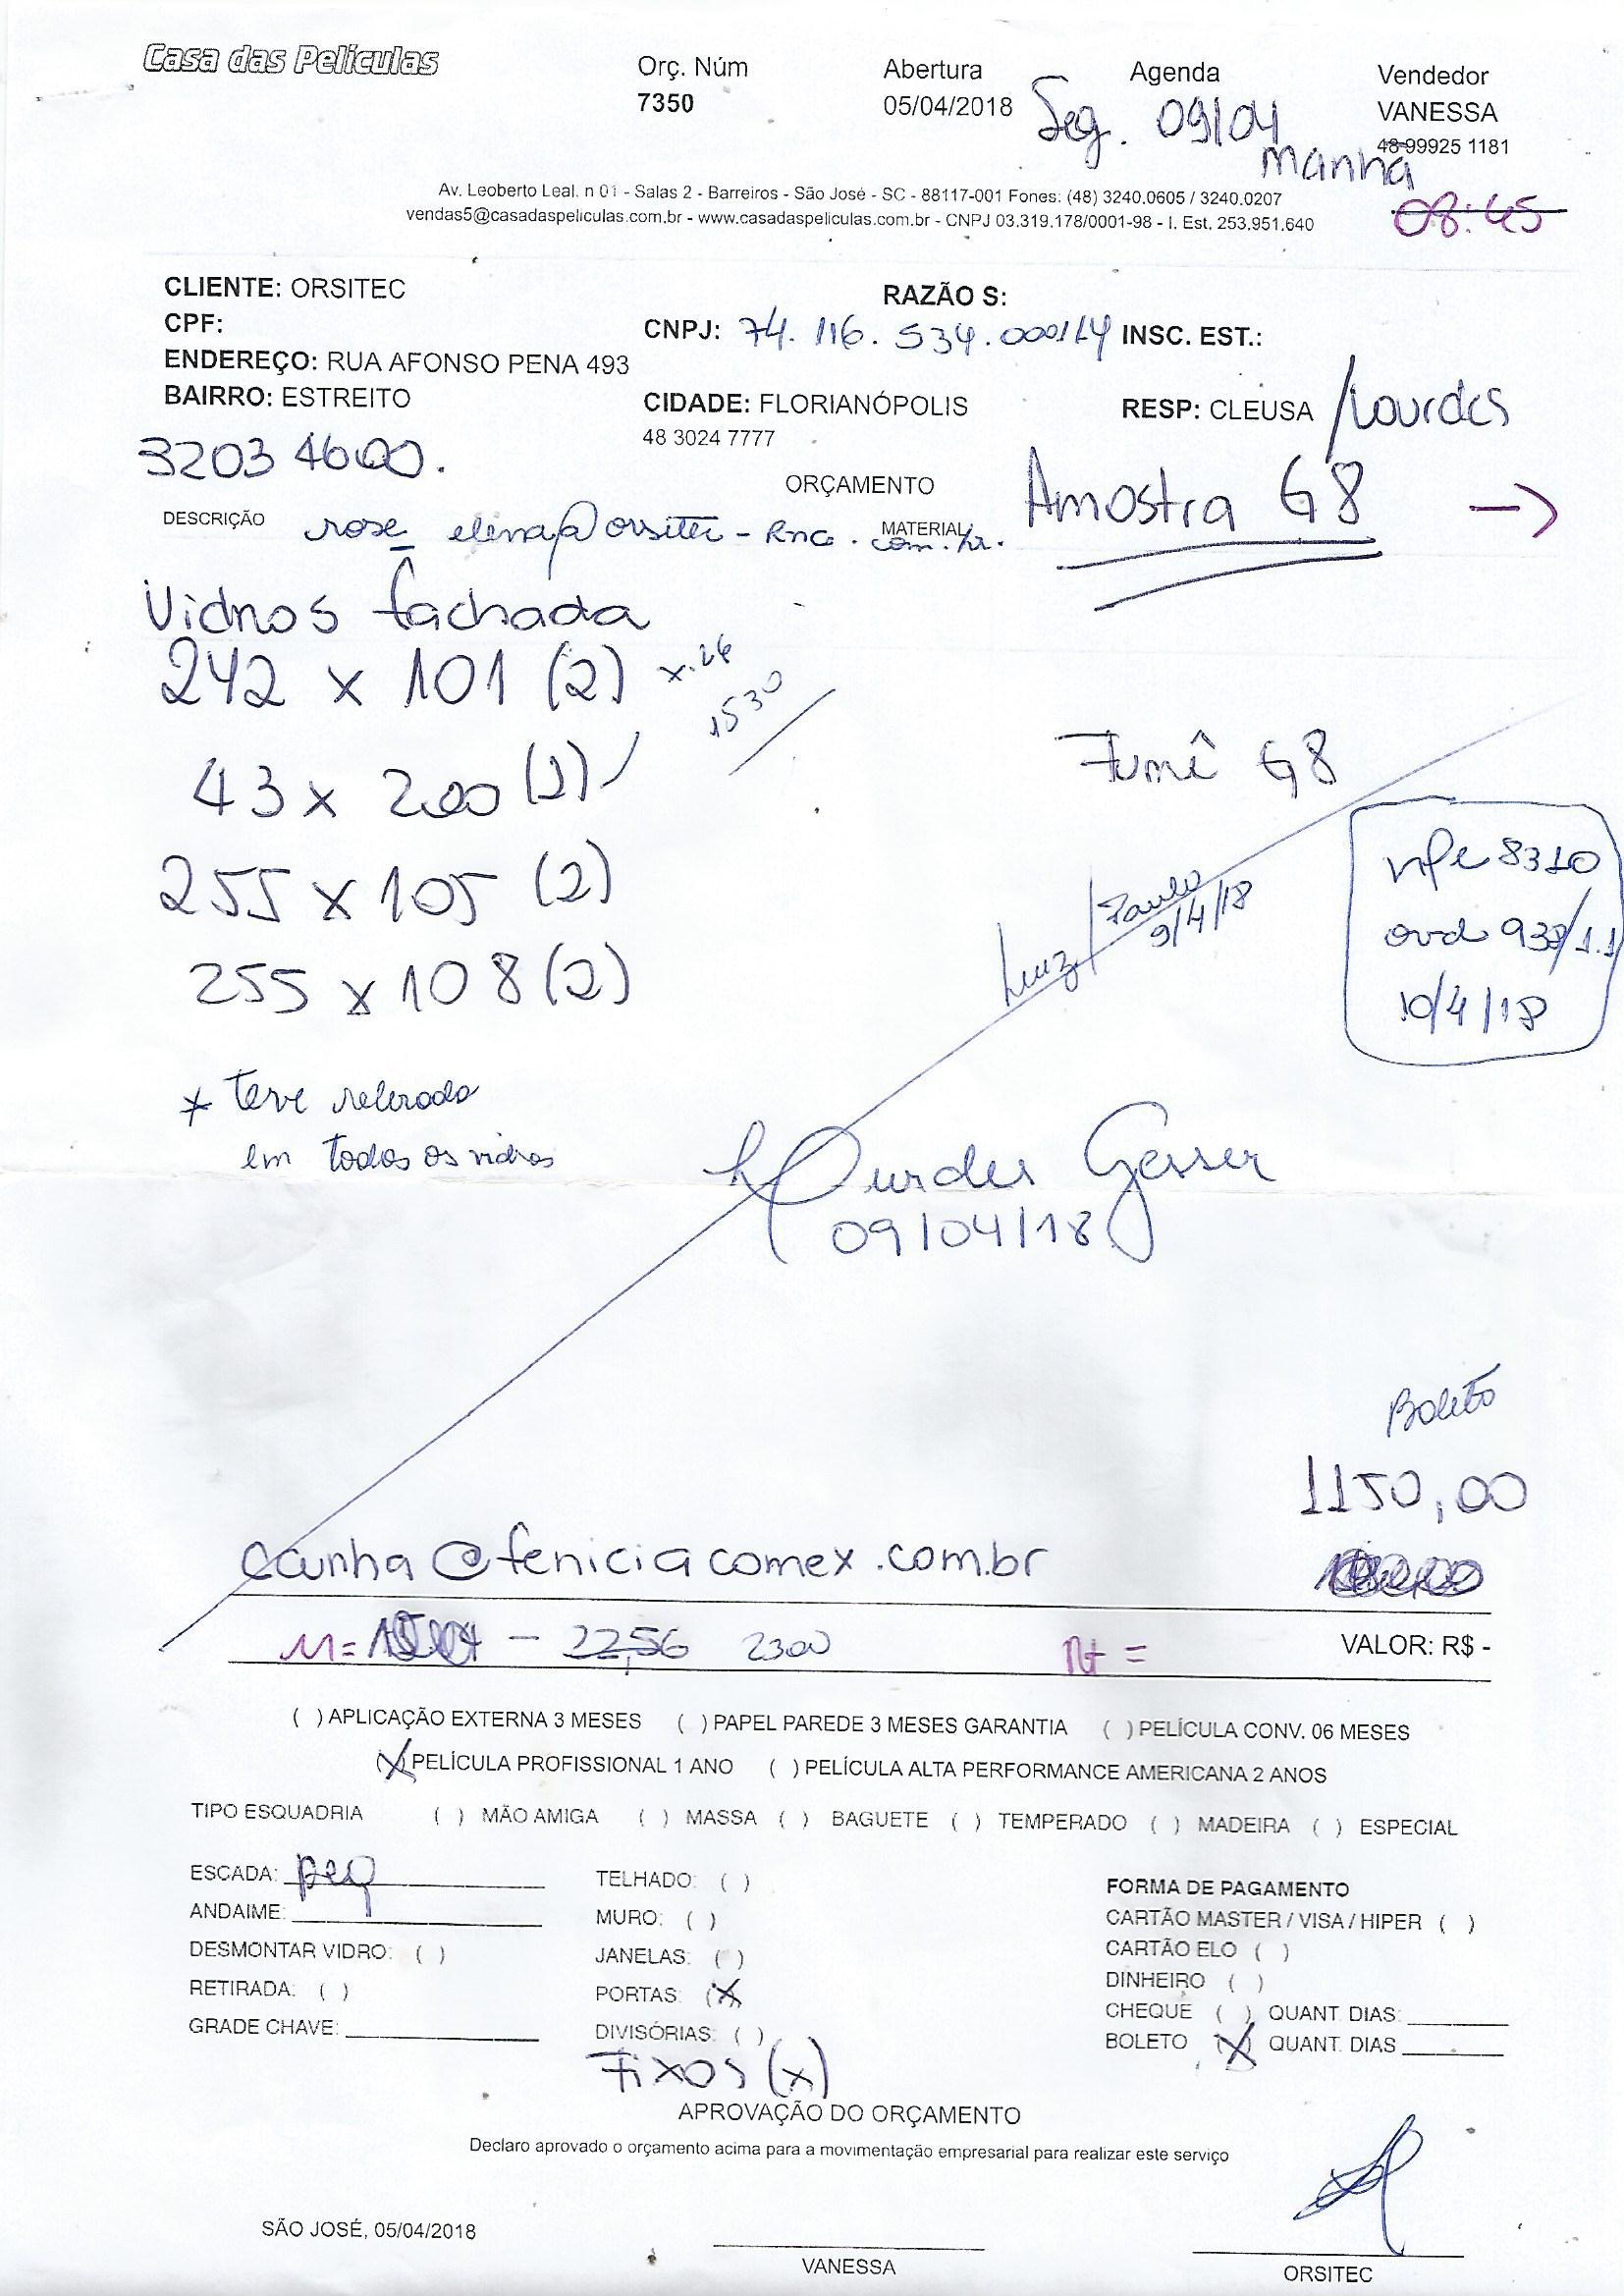 Casa das Películas
Orç. Núm
7350
Abertura
05/04/2018
Agenda
Seg. 09/04
manhã
08:45
Vendedor
VANESSA
48 99925 1181
Av. Leoberto Leal. n 01 - Salas 2 - Barreiros - São José - SC - 88117-001 Fones: (48) 3240.0605 / 3240.0207
vendas5@casadaspeliculas.com.br - www.casadaspeliculas.com.br - CNPJ 03.319.178/0001-98 - I. Est. 253.951.640
CLIENTE: ORSITEC
RAZÃO S:
CPF:
CNPJ: 74.116.534.0001/
INSC. EST.:
ENDEREÇO: RUA AFONSO PENA 493
BAIRRO: ESTREITO
CIDADE: FLORIANÓPOLIS
RESP: CLEUSA /Lourdes
48 3024 7777
3203 4600.
ORÇAMENTO
Amostra G8 →
DESCRIÇÃO
MATERIAL
rose_elena@orsitec-
com.br.
Vidros fachada
242 x 101 (2)
1530
43 x 200
255 x 105 (2)
255 x 108 (2)
Fumê G8
Luiz / Paulo
9/4/18
nfe 8310
10/4/18
* Teve
em todos os vidros
Lourdes Gesser
09/04/18
Boleto
1150,00
cunha@feniciacomex.com.br
M=
- 22,56 2300
VALOR: R$ -
( ) APLICAÇÃO EXTERNA 3 MESES ( ) PAPEL PAREDE 3 MESES GARANTIA ( ) PELÍCULA CONV. 06 MESES
(X) PELÍCULA PROFISSIONAL 1 ANO ( ) PELÍCULA ALTA PERFORMANCE AMERICANA 2 ANOS
TIPO ESQUADRIA ( ) MÃO AMIGA ( ) MASSA ( ) BAGUETE ( ) TEMPERADO ( ) MADEIRA ( ) ESPECIAL
ESCADA: peq
ANDAIME:
DESMONTAR VIDRO: ( )
RETIRADA: ( )
GRADE CHAVE:
TELHADO: ( )
MURO: ( )
JANELAS: ( )
PORTAS: (X)
DIVISÓRIAS: ( )
Fixos (x)
FORMA DE PAGAMENTO
CARTÃO MASTER / VISA / HIPER ( )
CARTÃO ELO ( )
DINHEIRO ( )
CHEQUE ( ) QUANT DIAS:
BOLETO (X) QUANT. DIAS
APROVAÇÃO DO ORÇAMENTO
Declaro aprovado o orçamento acima para a movimentação empresarial para realizar este serviço
SÃO JOSÉ, 05/04/2018
VANESSA
ORSITEC